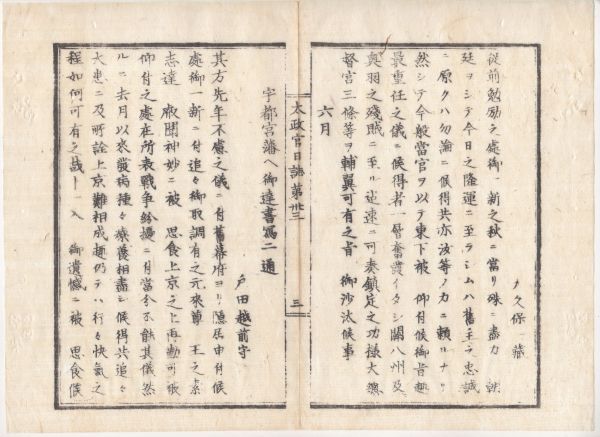 大久保一藏
從前勉勵之處御一新之秋ニ當リ殊ニ盡力 朝
廷ヲシテ今日之隆運ニ至ラシムハ舊主ヲ忠誠
ニ原クハ勿論ニ候得共亦汝等ノ力ニ賴ルナリ
然シテ今般當官ヲ以テ東下被 仰付候御旨趣
最重任之儀ニ候得者一層奮發イタシ關八州及
奥羽之殘賊ニ至ル迄速ニ可奏鎭定之功樣大總
督宮三條等ヲ輔翼可有之旨 御沙汰候事
六月
太政官日誌第卅三
三
宇都宮藩ヘ御達書寫二通
戸田越前守
其方先年不慮之儀ニ付舊幕府ヨリ隱居申付候
處御一新ニ付追々御取調有之元來尊 王之素
志達 叡聞神妙ニ被 思食上京之上再勤可被
仰付之處在所表戰爭紛擾ニ付當分不能其儀然
ルニ去月以來發病種々療養相盡シ候得共追々
大患ニ及所詮上京難相成趣仍テハ行々快氣之
程如何可有之哉ト一入 御遺憾ニ被 思食候